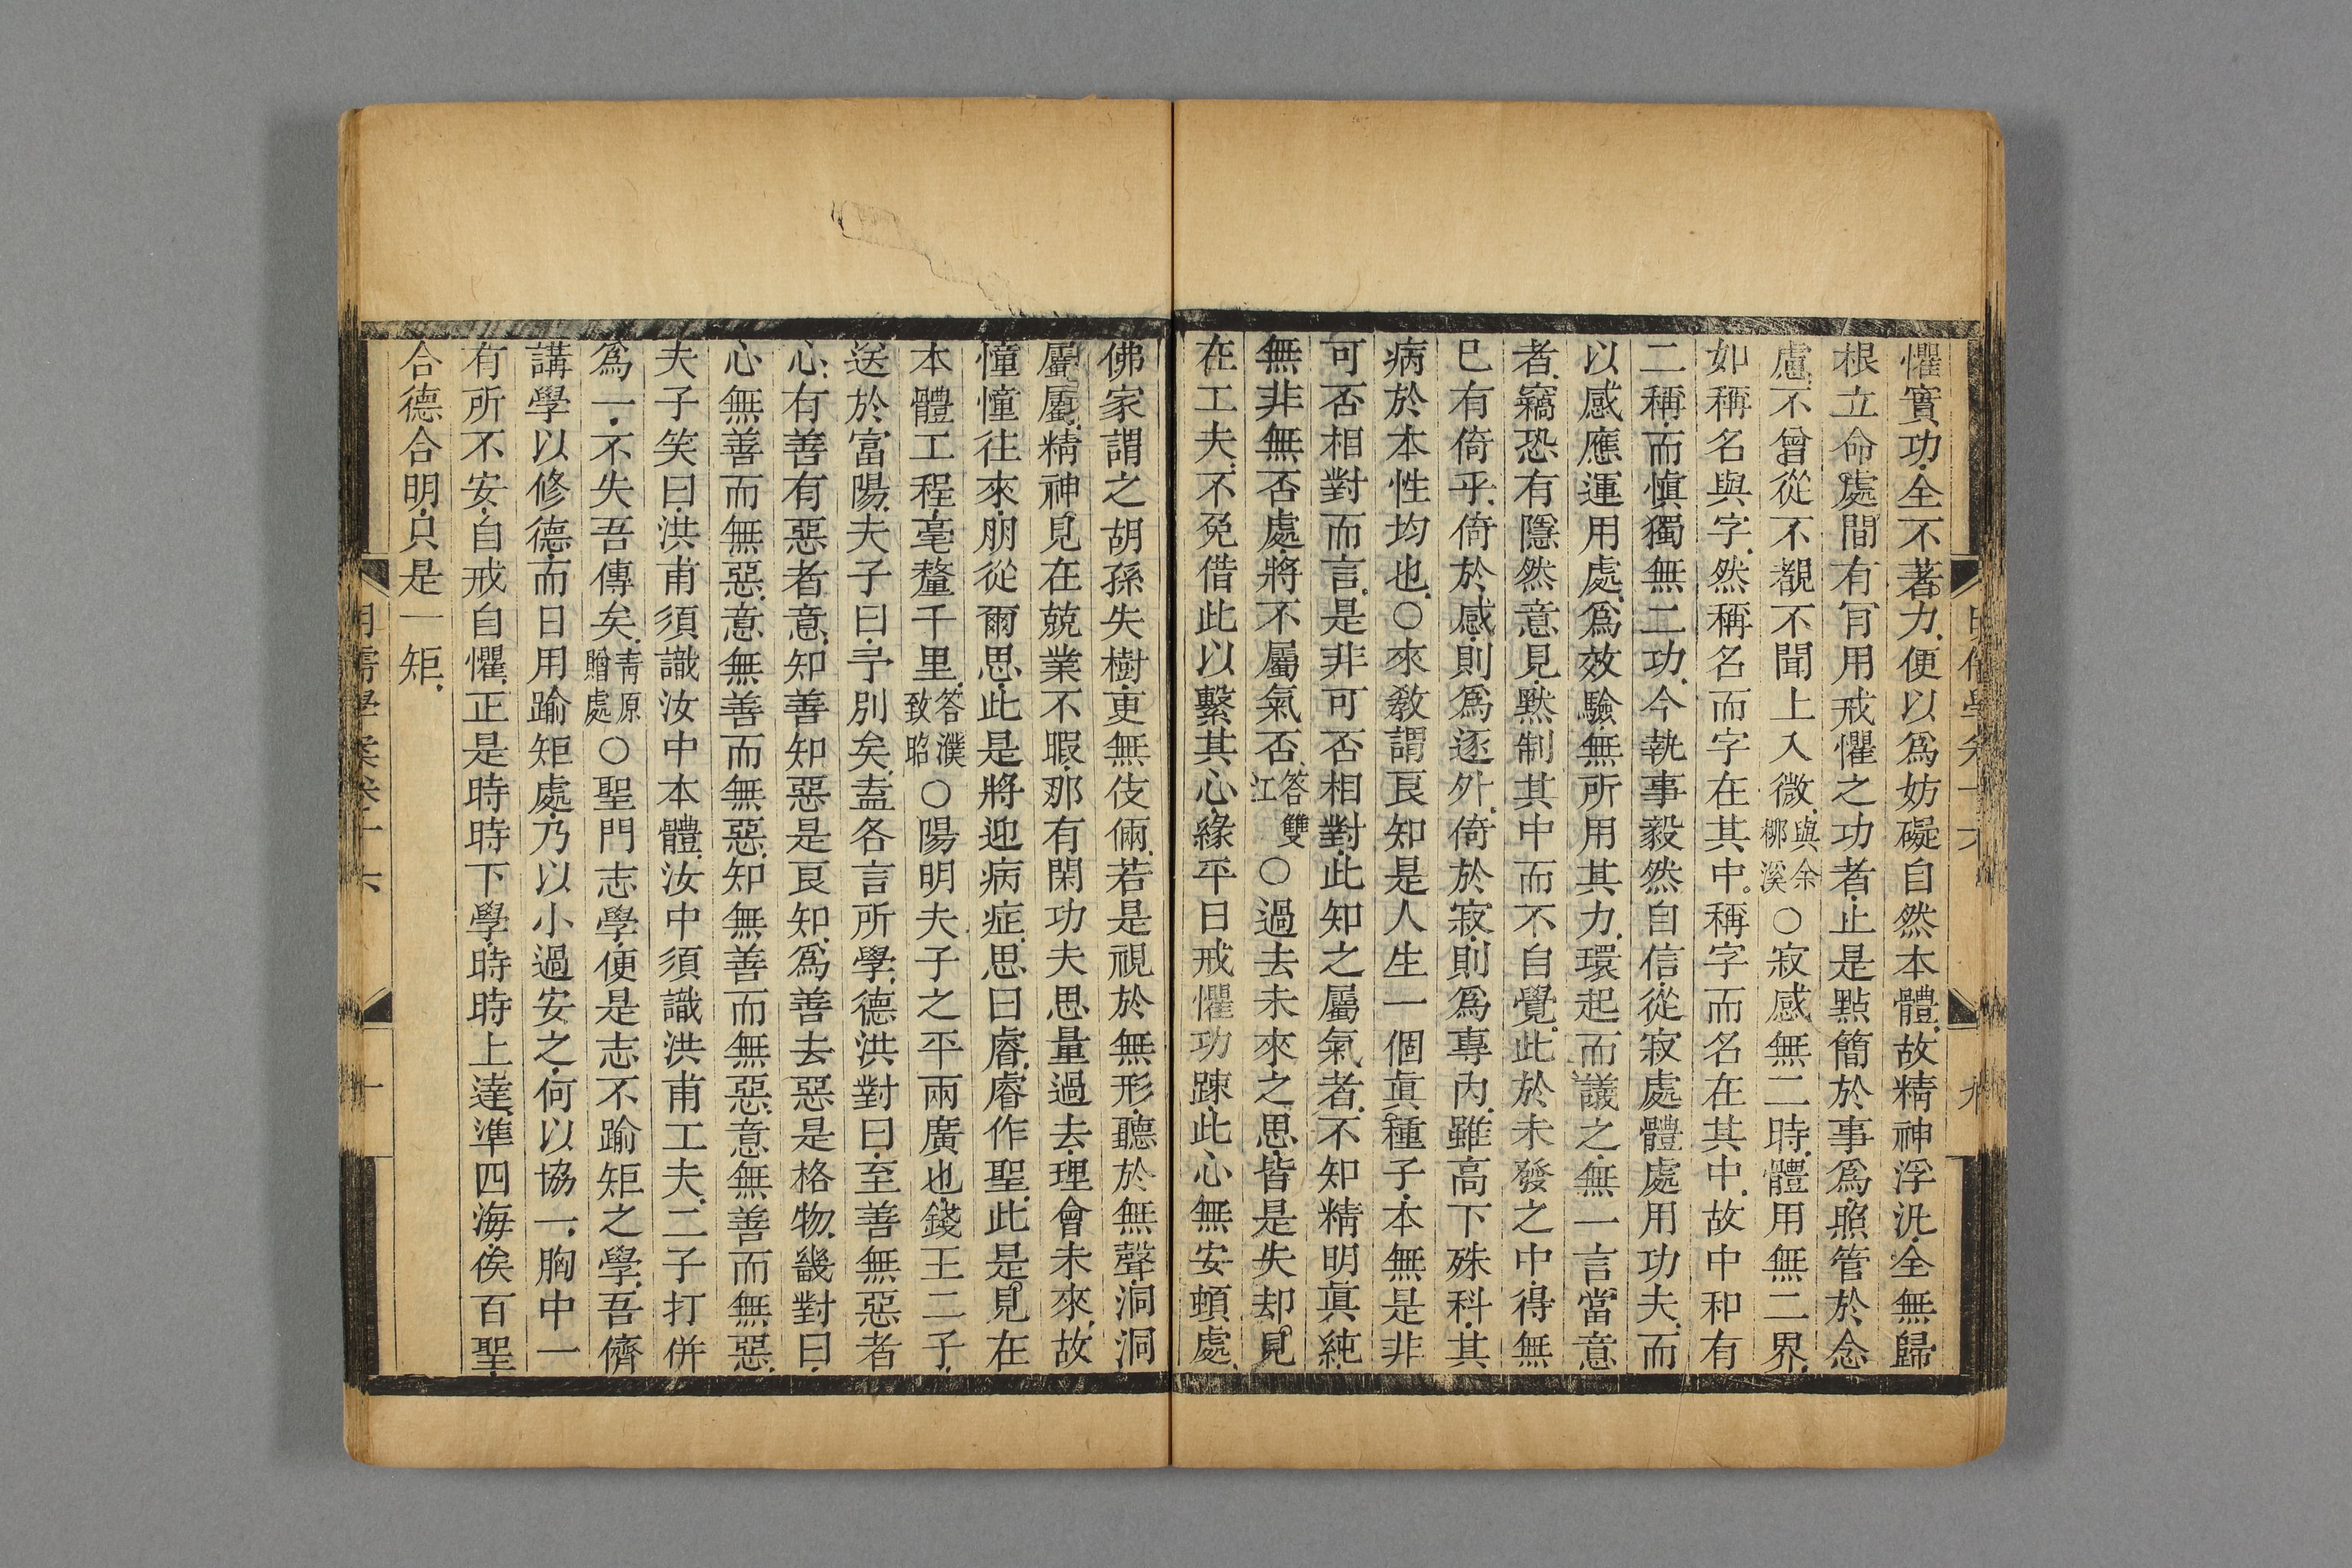 懼實功.全不著力.便以爲妨礙自然本體.故精神浮汎.全無歸
根立命處.間有肎用戒懼之功者.止是點簡於事爲.照管於念
慮.不曾從不覩不聞上入微.與余柳溪○寂感無二時.體用無二界.
如稱名與字.然稱名而字在其中.稱字而名在其中.故中和有
二稱.而慎獨無二功.今執事毅然自信.從寂處體處用功夫.而
以感應運用處.爲效驗.無所用其力.環起而議之.無一言當意
者.竊恐有隱然意見.默制其中而不自覺.此於未發之中.得無
已有倚乎.倚於感.則爲逐外.倚於寂.則爲專內.雖高下殊科.其
病於本性均也.○來敎謂良知是人生一個眞種子.本無是非
可否相對而言.是非可否相對.此知之屬氣者.不知精明眞純.
無非無否處.將不屬氣否.答雙江○過去未來之思.皆是失却見
在工夫.不免借此以繫其心.緣平日戒懼功踈.此心無安頓處.
佛家謂之胡孫失樹.更無伎倆.若是視於無形.聽於無聲.洞洞
屬屬.精神見在兢業不暇.那有閑功夫思量過去.理會未來.故
憧憧往來.朋從爾思.此是將迎病症.思曰睿.睿作聖.此是見在
本體工程.毫釐千里.答濮致昭○陽明夫子之平兩廣也.錢王二子.
送於富陽.夫子曰.予別矣.盍各言所學.德洪對曰.至善無惡者
心.有善有惡者意.知善知惡是良知.爲善去惡是格物.畿對曰.
心無善而無惡.意無善而無惡.知無善而無惡.意無善而無惡.
夫子笑曰.洪甫須識汝中本體.汝中須識洪甫工夫.二子打併
爲一.不失吾傳矣.靑原贈處○聖門志學.便是志不踰矩之學.吾儕
講學以修德.而日用踰矩處.乃以小過安之.何以協一.胸中一
有所不安.自戒自懼.正是時時下學.時時上達.準四海.俟百聖.
合德合明.只是一矩.